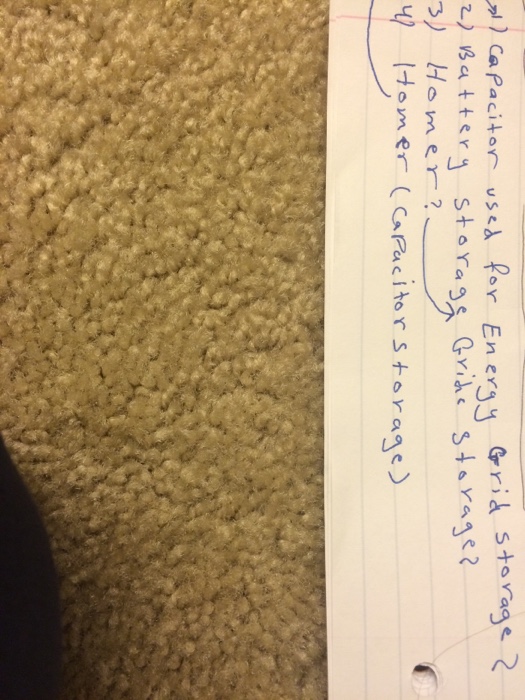 1) Capacitor used for Energy Grid storage?
2) Battery storage Gride storage?
3) Homer?
4) Homer (Capacitor storage)